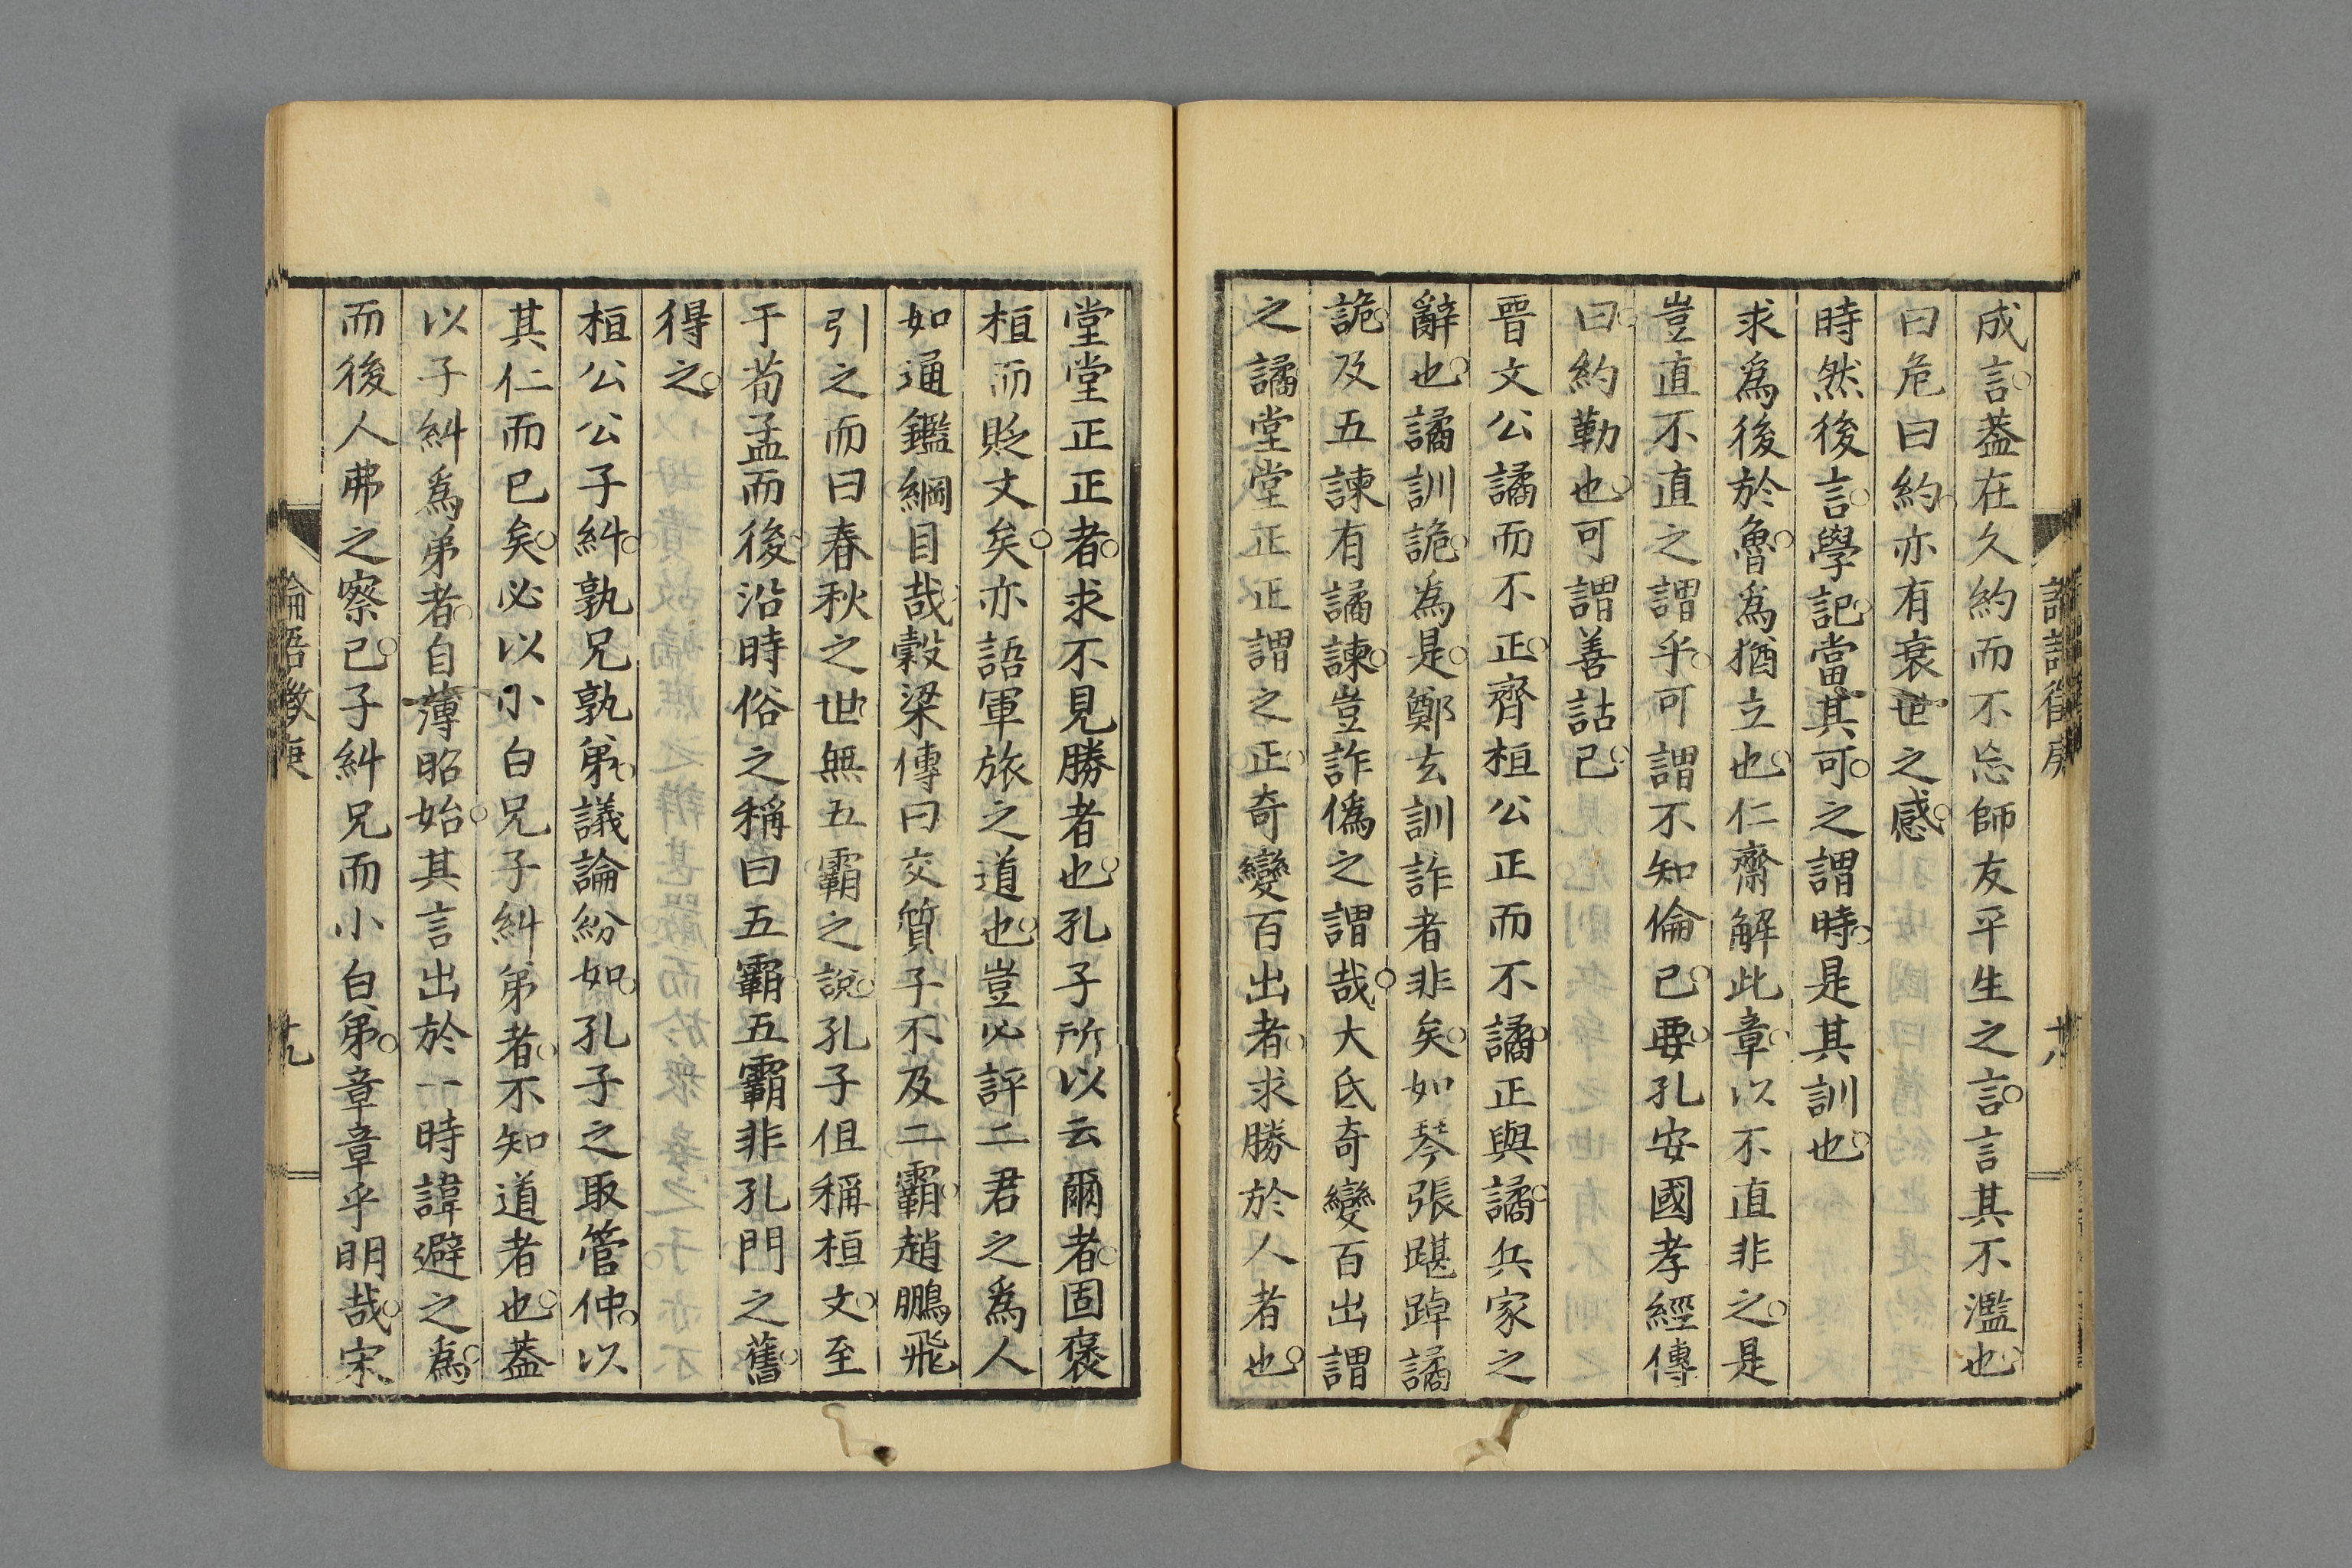 成言。葢在久約而不忘師友平生之言。言其不濫也。
曰危曰約。亦有衰世之感。
時然後言。學記。當其可。之謂時。是其訓也。
求爲後於魯。爲猶立也。仁齋解此章。以不直非之。是
豈直不直之謂乎。可謂不知倫已。要。孔安國孝經傳
曰。約勒也。可謂善詁已。
晉文公譎而不正。齊桓公正而不譎。正與譎。兵家之
辭也。譎訓詭。為是。鄭玄訓詐者非矣。如琴張踸踔譎
詭。及五諫有譎諫。豈詐僞之謂哉。大氐奇變百出謂
之譎。堂堂正正謂之正。奇變百出者。求勝於人者也。
論語徵庚
十八
堂堂正正者。求不見勝者也。孔子所以云爾者。固褒
桓而貶文矣。亦語軍旅之道也。豈必評二君之爲人
如通鑑綱目哉。穀梁傳曰交質子不及二霸。趙鵬飛
引之而曰春秋之世無五霸之說。孔子但稱桓文。至
于荀孟而後。沿時俗之稱曰五霸。五霸非孔門之舊。
得之。
桓公公子糾。孰兄孰弟。議論紛如。孔子之取管仲。以
其仁而已矣。必以小白兄子糾弟者。不知道者也。葢
以子糾爲弟者。自薄昭始。其言出於一時諱避之爲。
而後人弗之察已。子糾兄而小白弟。章章乎明哉。宋
論語徵庚
十九